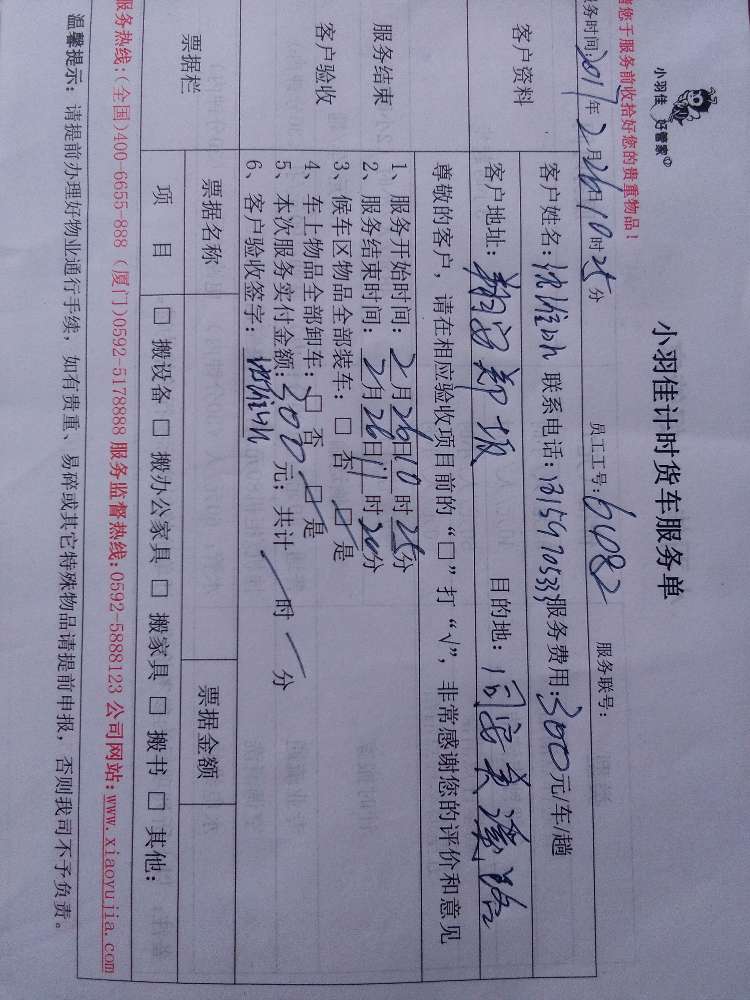 小羽佳 好管家
小羽佳计时货车服务单
请您于服务前收拾好您的贵重物品！
服务时间：2017年2月26日10时25分 员工工号：6482 服务联号：
客户资料
客户姓名： 联系电话： 服务费用：300元/车/趟
客户地址：翔安郑坂 目的地：同安美溪路
尊敬的客户，请在相应验收项目前的“□”打“√”，非常感谢您的评价和意见
服务结束
客户验收
1、服务开始时间：2月26日10时25分
2、服务结束时间：2月26日11时20分
3、候车区物品全部装车：□ 否 □ 是
4、车上物品全部卸车：□ 否 □ 是
5、本次服务实付金额：300元；共计 一 时 一 分
6、客户验收签字：
票据栏
票据名称 票据金额
项 目 □ 搬设备 □ 搬办公家具 □ 搬家具 □ 搬书 □ 其他：
服务热线：(全国)400-6655-888 (厦门)0592-5178888 服务监督热线：0592-5888123 公司网站：www.xiaoyujia.com
温馨提示：请提前办理好物业通行手续，如有贵重、易碎或其它特殊物品请提前申报，否则我司不予负责。